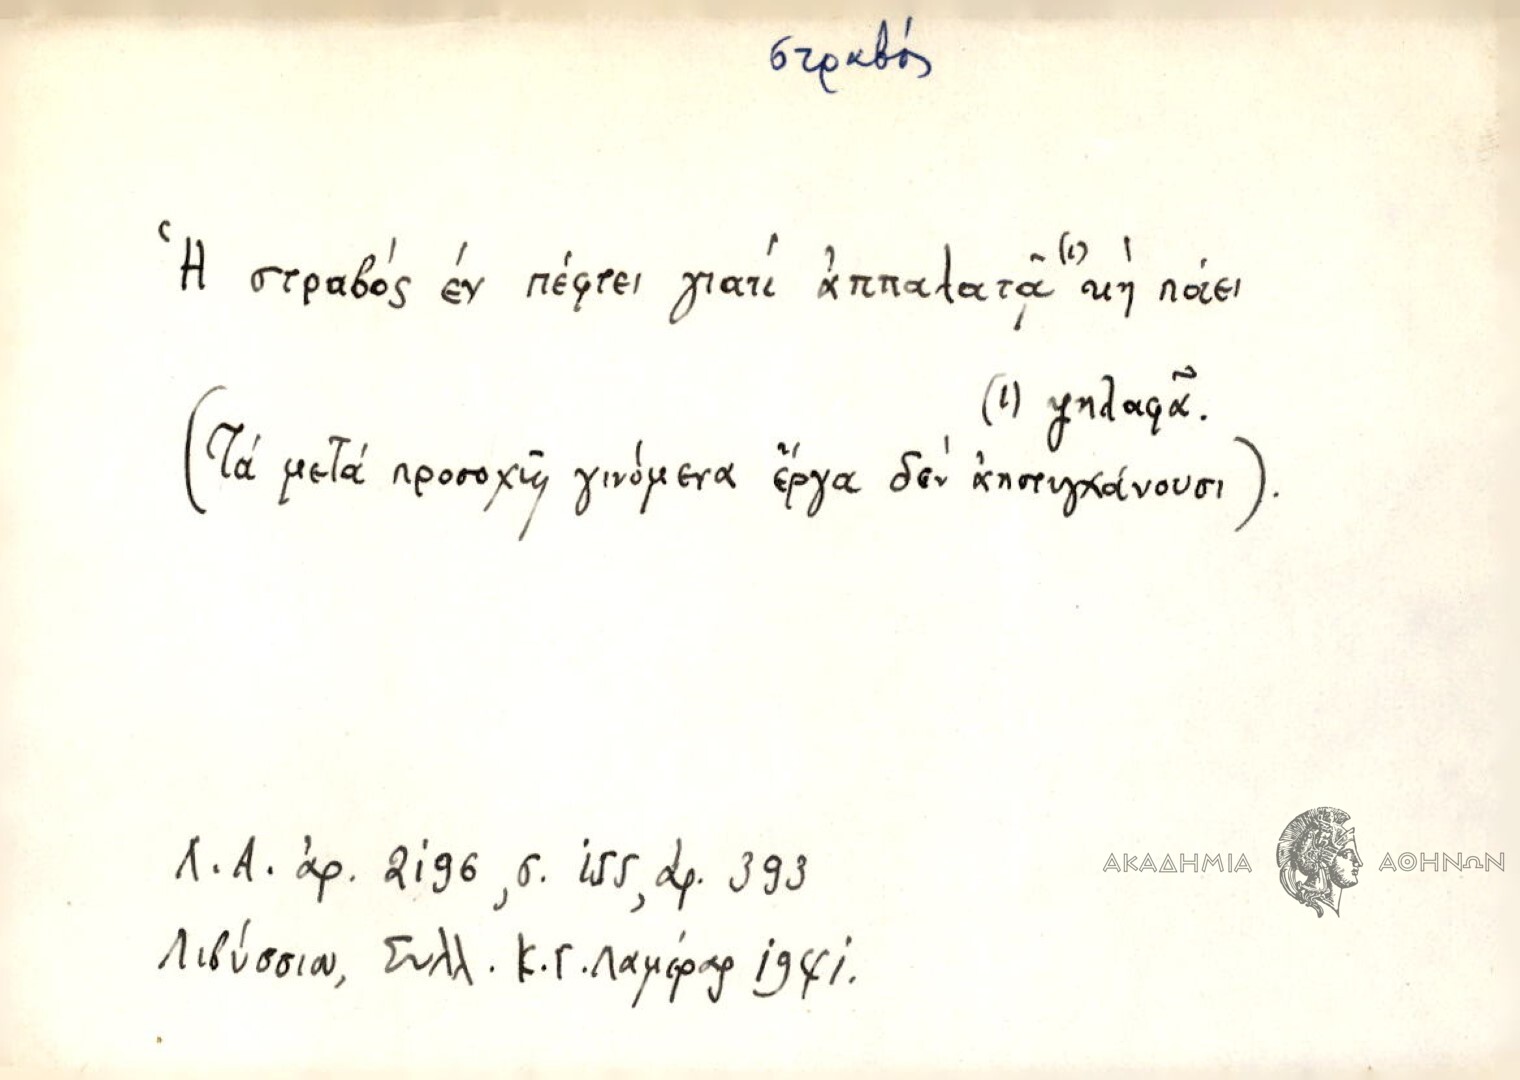 στραβός
Ἡ στραβός έν πέφτει γιατί ἀππαλατᾷ (1) κή πάει
(1) ψηλαφᾶ.
(Τά μετά προσοχῆς γινόμενα ἔργα δέν ἀποτυγχάνουσι).
Λ.Α. ἀρ. 2196, σ. 155, ἀρ. 393
Λιβύσσιον, Συλλ. Κ.Γ. 1941.
ΑΚΑΔΗΜΙΑ ΑΘΗΝΩΝ